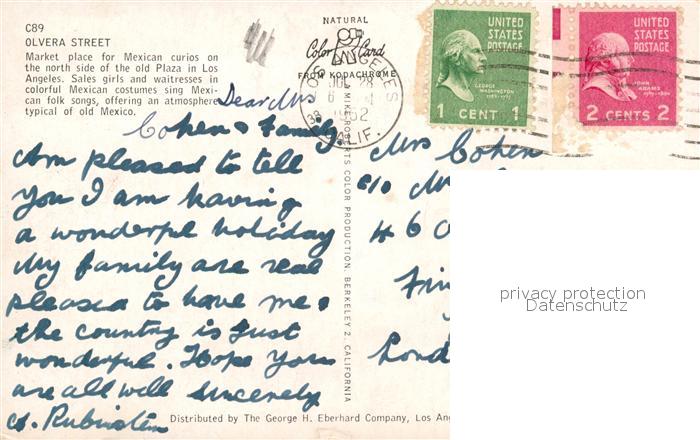 C89
OLVERA STREET
Market place for Mexican curios on
the north side of the old Plaza in Los
Angeles. Sales girls and waitresses in
colorful Mexican costumes sing Mexi-
can folk songs, offering an atmosphere
typical of old Mexico.
NATURAL
Color Card
FROM KODACHROME
LOS ANGELES
28
1952
CALIF.
UNITED
STATES
POSTAGE
GEORGE
WASHINGTON
1 CENT 1
UNITED
STATES
POSTAGE
JOHN
ADAMS
2 CENTS 2
MIKE ROBERTS COLOR PRODUCTION, BERKELEY 2, CALIFORNIA
Dear Mrs
Cohen & Family,
Am pleased to tell
you I am having
a wonderful holiday
My family are real
pleased to have me &
the country is just
wonderful. Hope you
are all well sincerely
Rubinstein
Mrs Cohen
c/o M
46
Lond
privacy protection
Datenschutz
Distributed by The George H. Eberhard Company, Los Ang